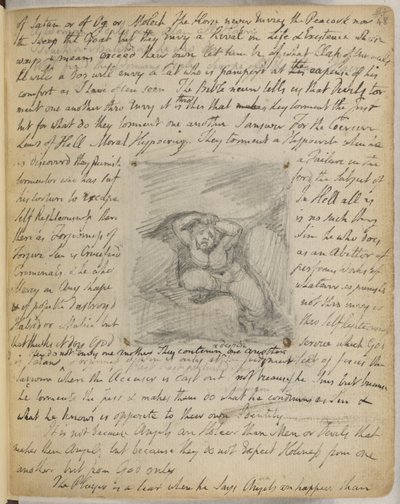 of Satan or of Og. or Moloch The Horse never Envies the Peacock nor
the Sheep the Goat but they Envy a Rival in Life & Existence whose
ways & means exceed their own let him be of what Class of Animals
he will a Dog will envy a Cat who is pamperd at the expense of his
comfort as I have often seen The Bible never tells us that Devils tor
ment one another thro Envy it is thro this that they torment the Just
but for what do they torment one another I answer For the Coercive
Laws of Hell Moral Hypocrisy. They torment a Hypocrite when he
is discoverd they Punish a Failure in the
tormentor who has suf ferd the Subject of
his torture to Escape In Hell all is
Self Righteousness there is no such thing
there as Forgiveness of Sin he who does
Forgive Sin is Crucified as an Abettor of
Criminals & he who performs Works of
Mercy in Any shape whatever is punishd
& if possible destroyd not thro envy or
Hatred or Malice but thro Self Righteousness
that thinks it does God service which God
is Satan They do not Envy one another They contemn & despise one another
Forgiveness of Sin is only at the Judgment Seat of Jesus the
Saviour where the Accuser is cast out. not because he Sins but because
he torments the Just & makes them do what he condemns as Sin &
what he knows is opposite to their own Identity
It is not because Angels are Holier than Men or Devils that
makes them Angels but because they do not Expect Holiness from one
another but from God only
The Player is a liar when he says Angels are happier than